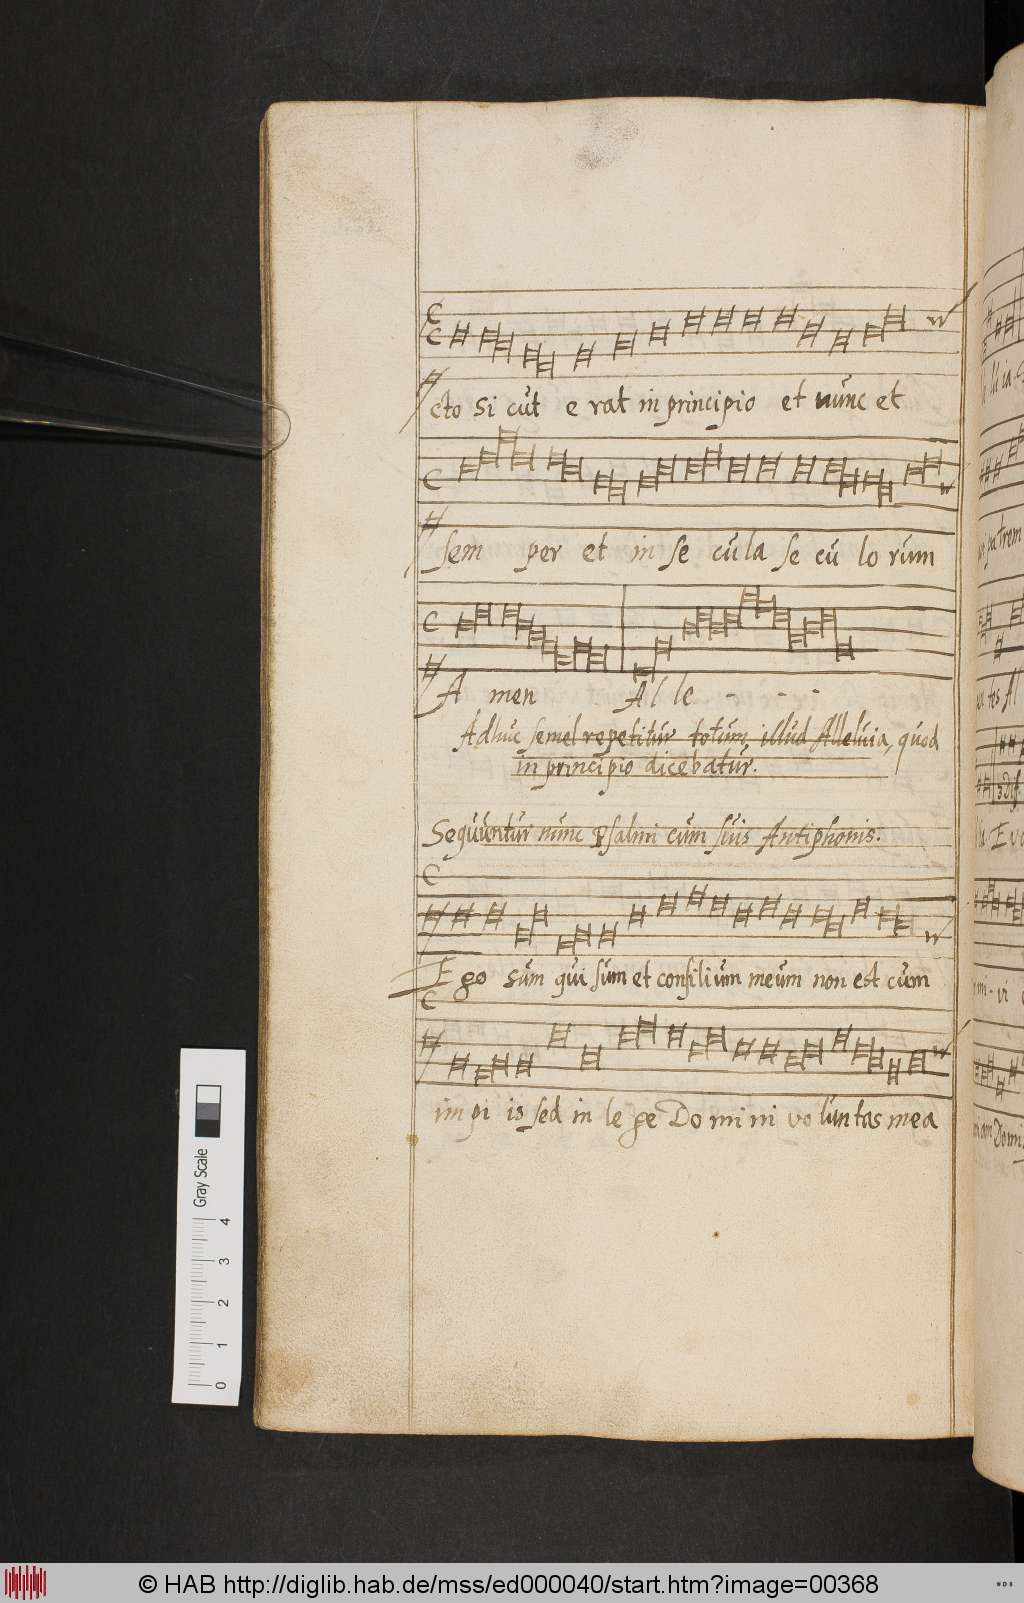 cto Si cùt e rat in principio et nùnc et
sem per et in se cùla se cù lo rùm
A men Al le - - -
Adhùc semel repetitùr totùm illùd Allelùia, qùod
in principio dicebatùr.
Seqùùntùr nùnc Psalmi cùm sùis Antiphonis.
E go sùm qùi sùm et consiliùm meùm non est cùm
im pi is sed in le ge Do mi ni vo lùn tas mea
patrem
Domi
Gray Scale
4
3
2
1
0
© HAB http://diglib.hab.de/mss/ed000040/start.htm?image=00368